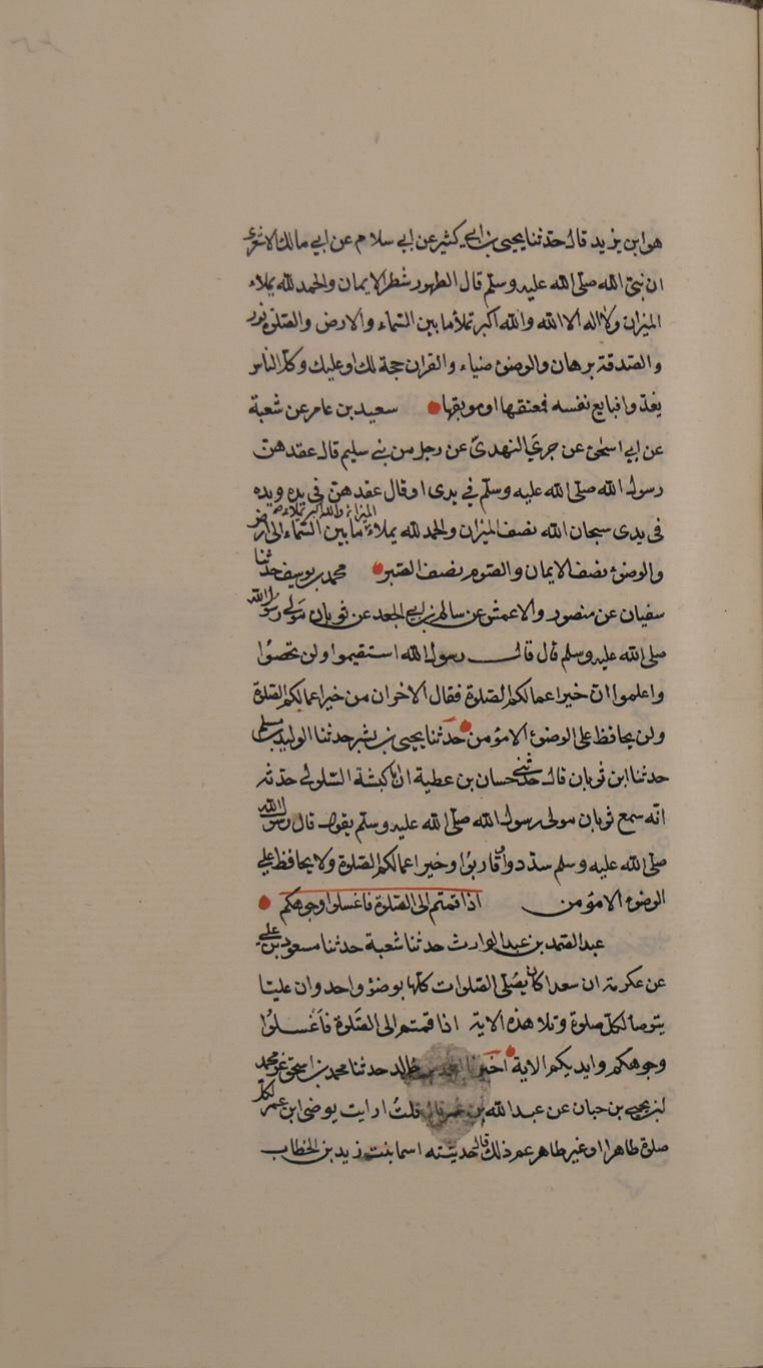 هو ابن يزيد قال حدثنا يحيى بن ابي كثير عن ابي سلام عن ابي مالك الاشعري
ان نبي الله صلى الله عليه وسلم قال الطهور شطر الايمان والحمد لله يملاء
الميزان ولا اله الا الله والله اكبر تملأ ما بين السماء والارض والصلوة نور
والصدقة برهان والوضوء ضياء والقران حجة لك او عليك وكل الناس
يغدوا فبايع نفسه فمعتقها او موبقها سعيد بن عامر عن شعبة
عن ابي اسحق عن جري النهدي عن رجل من بني سليم قال عقدهن
رسول الله صلى الله عليه وسلم في يدى او قال عقدهن في يده ويده
في يدى سبحان الله نصف الميزان والحمد لله يملاء الميزان والله اكبر تملاء ما بين السماء الى الارض
والوضوء نصف الايمان والصوم نصف الصبر محمد بن يوسف حدثنا
سفيان عن منصور والاعمش عن سالم بن ابي الجعد عن ثوبان مولى رسول الله
صلى الله عليه وسلم قال قال رسول الله استقيموا ولن تحصوا
واعلموا ان خير اعمالكم الصلوة فقال الاخر ان من خير اعمالكم الصلاة
ولن يحافظ على الوضوء الا مؤمن حدثنا يحيى بن بشر حدثنا الوليد بن مسلم
حدثنا ابن ثوبان قال حدثني حسان بن عطية ان ابا كبشة السلولي حدثه
انه سمع ثوبان مولى رسول الله صلى الله عليه وسلم يقول قال رسول الله
صلى الله عليه وسلم سددوا وقاربوا وخير اعمالكم الصلوة ولا يحافظ على
الوضوء الا مؤمن اذا قمتم الى الصلوة فاغسلوا وجوهكم
عبد الصمد بن عبد الوارث حدثنا شعبة حدثنا مسعود بن علي
عن عكرمة ان سعدا كان يصلى الصلوات كلها بوضؤ واحد وان عليا
يتوضأ لكل صلوة وتلا هذه الاية اذا قمتم الى الصلوة فاغسلوا
وجوهكم وايديكم الاية اخبرنا احمد بن خالد حدثنا محمد بن اسحق عن محمد
بن يحيى بن حبان عن عبد الله بن عمر قال قلت ارايت يوضى ابن عمر لكل
صلوة طاهرا او غير طاهر عم ذلك قال حدثته اسما بنت زيد بن الخطاب